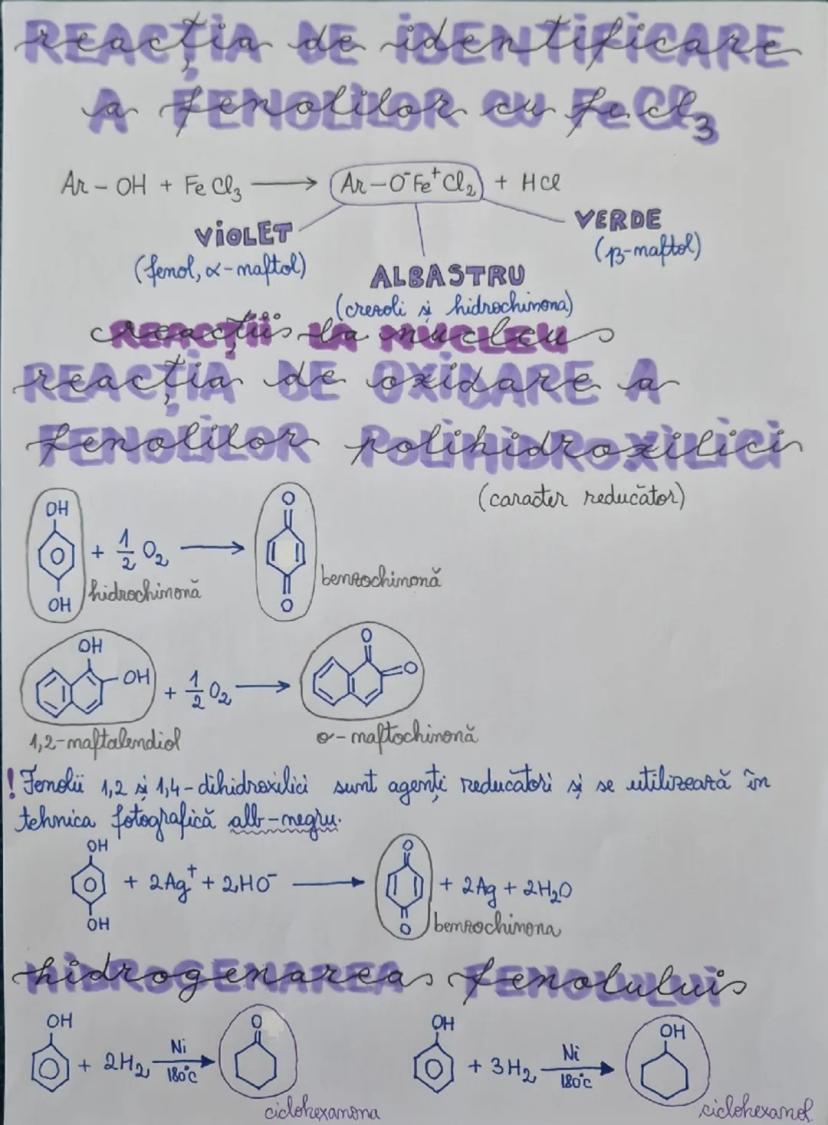 REACȚIA DE IDENTIFICARE
A FENOLILOR CU FeCl₃
Ar – OH + FeCl₃ ⟶ Ar–O⁻Fe⁺Cl₂ + HCl
VIOLET
(fenol, α-naftol)
ALBASTRU
(crezoli și hidrochinona)
VERDE
(β-naftol)
REACȚII LA NUCLEU
REACȚIA DE OXIDARE A
FENOLILOR POLIHIDROXILICI
(caracter reducător)
OH
OH
+ 1/2 O₂ ⟶
O
O
hidrochinonă
benzochinonă
OH
OH
+ 1/2 O₂ ⟶
O
O
1,2-naftalendiol
o-naftochinonă
! Fenolii 1,2 și 1,4-dihidroxilici sunt agenți reducători și se utilizează în
tehnica fotografică alb-negru.
OH
OH
+ 2Ag⁺ + 2HO⁻ ⟶
O
O
+ 2Ag + 2H₂O
benzochinona
HIDROGENAREA FENOLULUI
OH
+ 2H₂
Ni
180°C
O
ciclohexanona
OH
+ 3H₂
Ni
180°C
OH
ciclohexanol